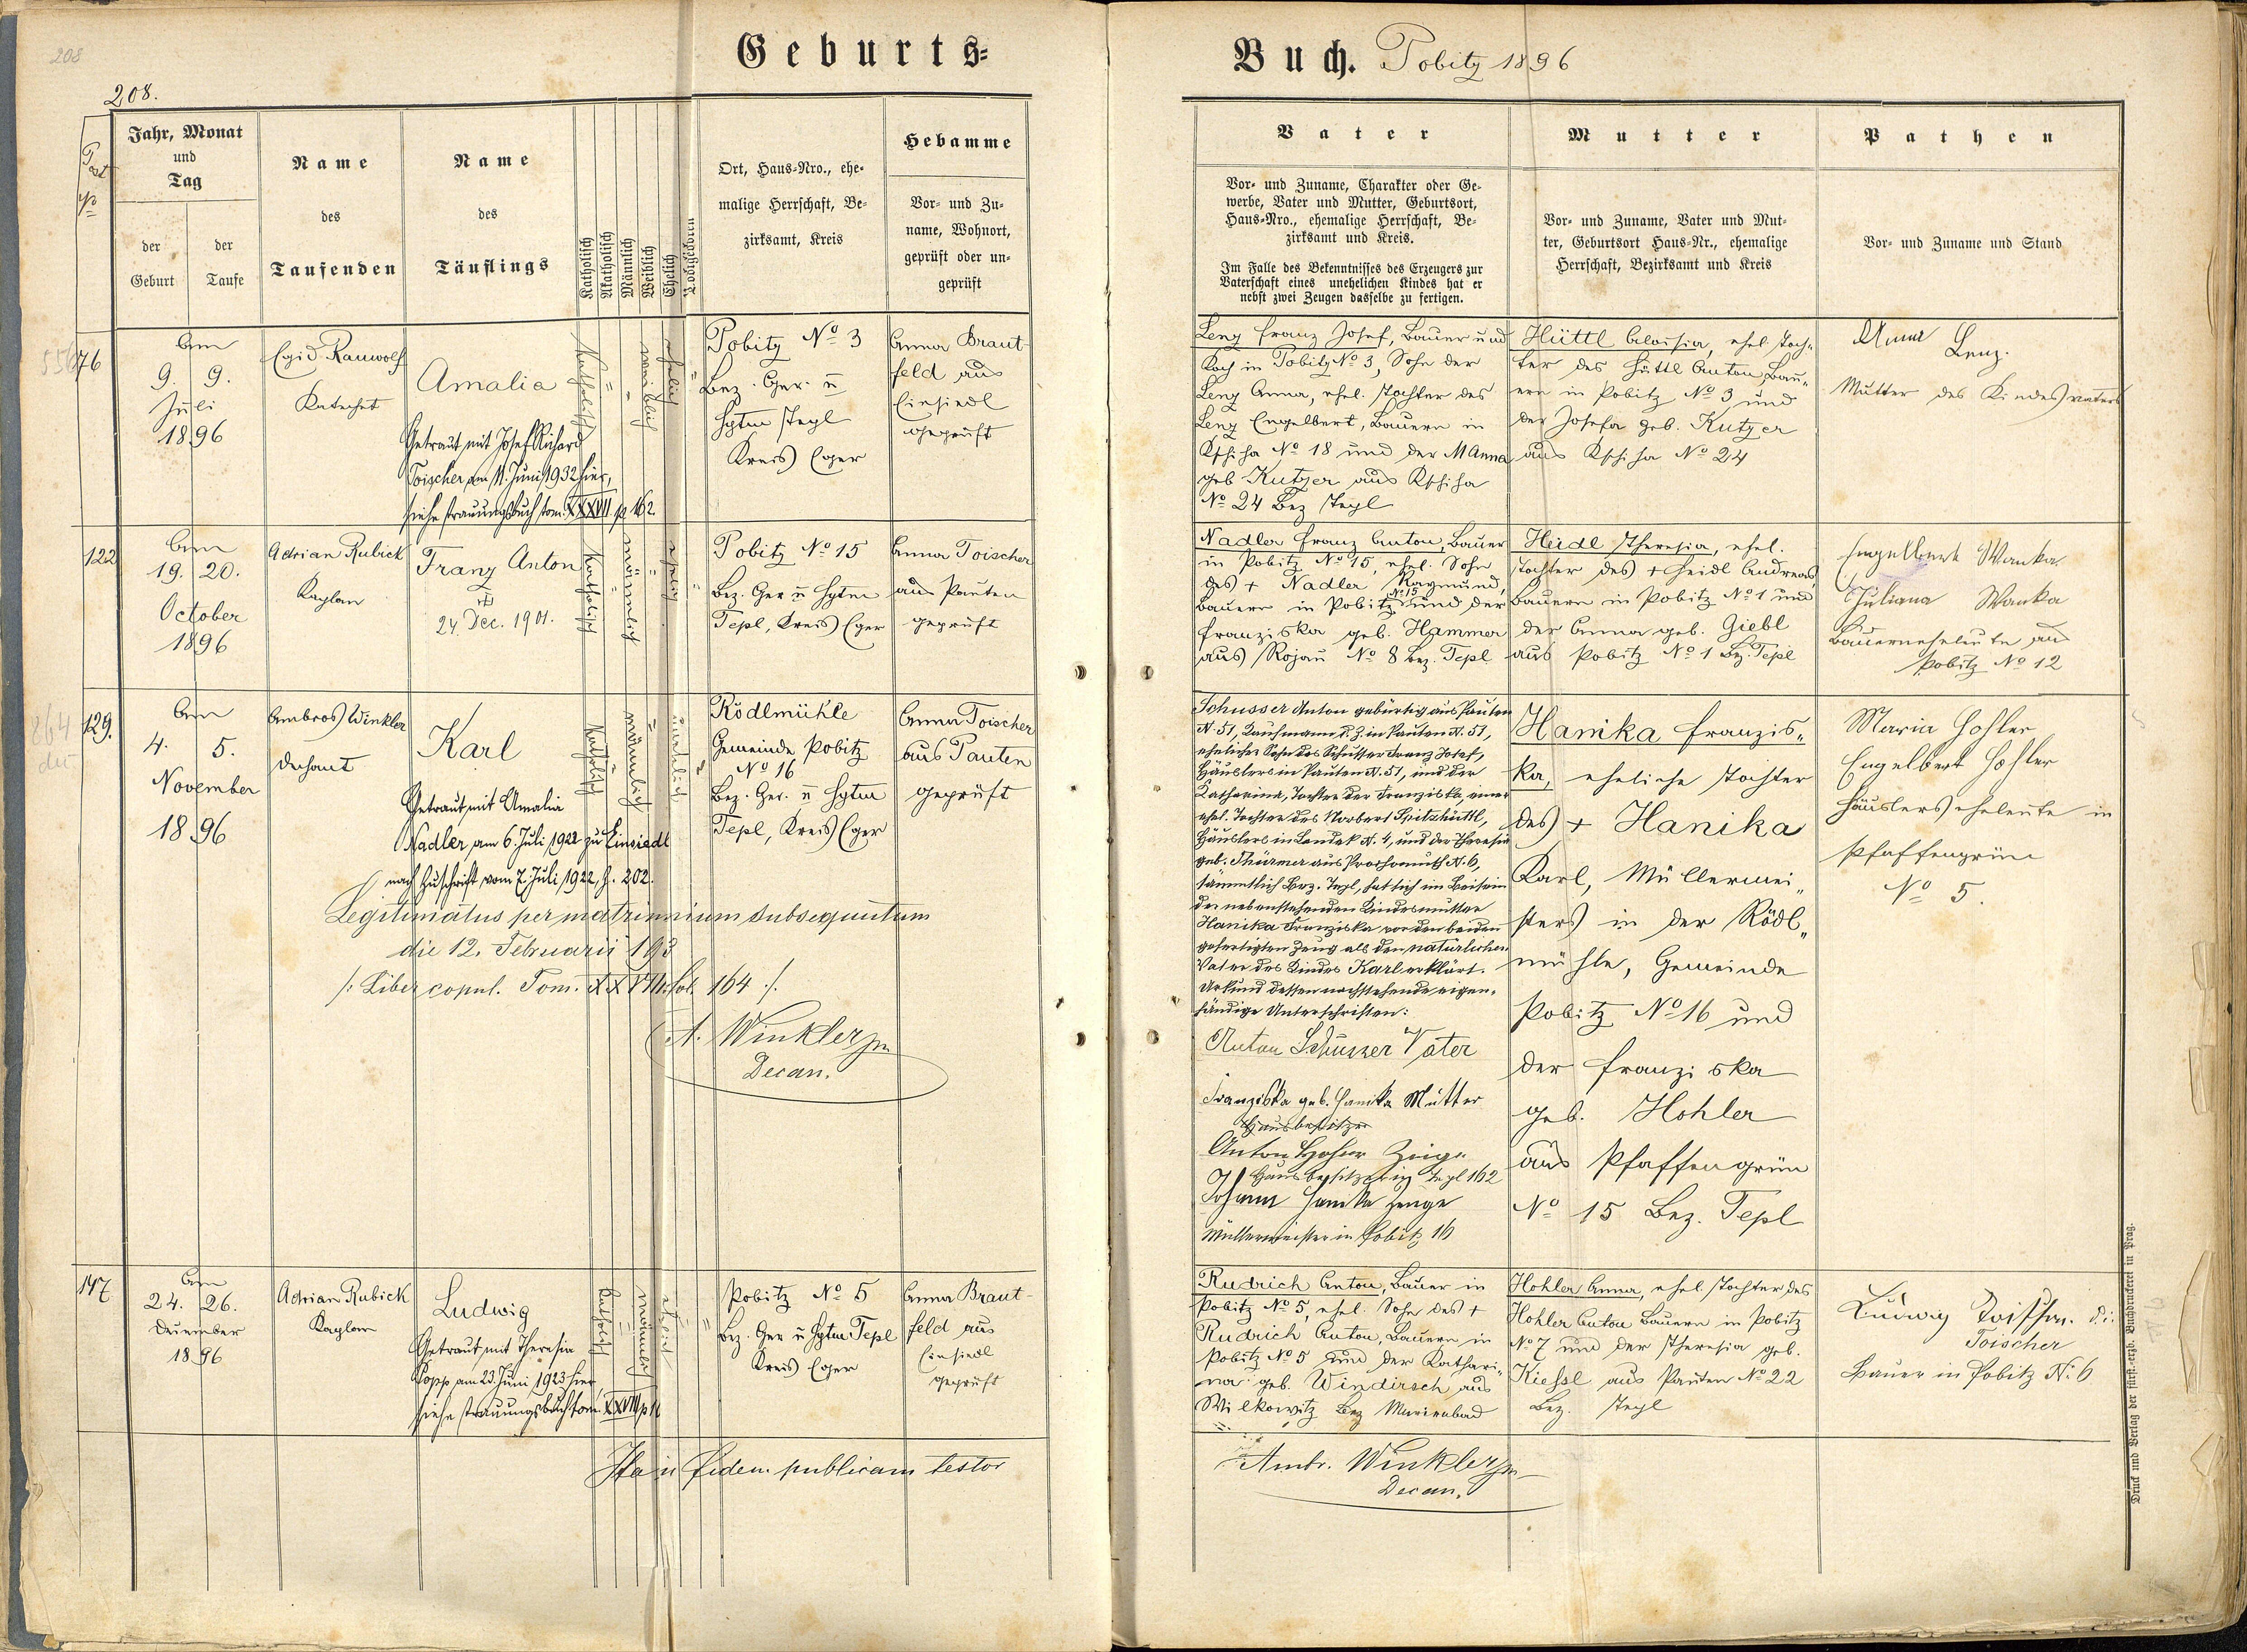 208
208.
Geburts=
Buch. Pobitz 1896
Post
No
Jahr, Monat
und
Tag
der
Geburt
der
Taufe
Name
des
Taufenden
Name
des
Täuflings
Katholisch
Akatholisch
Männlich
Weiblich
Ehelich
Ort, Haus=Nro., ehe-
malige Herrschaft, Be-
zirksamt, Kreis
Hebamme
Vor- und Zu-
name, Wohnort,
geprüft oder un-
geprüft
Vater
Vor- und Zuname, Charakter oder Ge-
werbe, Vater und Mutter, Geburtsort,
Haus=Nro., ehemalige Herrschaft, Be-
zirksamt und Kreis.
Im Falle des Bekenntnisses des Erzeugers zur
Vaterschaft eines unehelichen Kindes hat er
nebst zwei Zeugen dasselbe zu fertigen.
Mutter
Vor- und Zuname, Vater und Mut-
ter, Geburtsort Haus=Nr., ehemalige
Herrschaft, Bezirksamt und Kreis
Pathen
Vor- und Zuname und Stand
76
Am
9. 9.
Juli
1896
Egid Rauwolf
Katechet
Amalia
Getraut mit Josef Richard
Toischer am 11. Juni 1932 hier,
siehe Trauungsbuch tom. XXXVII p 162.
katholisch
weiblich
ehelich
Pobitz No 3
Bez. Ger. u
Hptm Tepl
Kreis Eger
Anna Braut-
feld aus
Einsiedl
geprüft
Lenz Franz Josef, Bauer und
Koch in Pobitz No 3, Sohn der
Lenz Anna, ehel. Tochter des
Lenz Engelbert, Bauern in
Kschiha No 18 und der M Anna
geb Kutzer aus Kschiha
No 24 Bez Tepl
Hüttl Aloisia, ehel. Toch-
ter des Hüttl Anton, Bau-
ern in Pobitz No 3 und
der Josefa geb. Kutzer
aus Kschiha No 24
Anna Lenz.
Mutter des Kindesvaters
122
Am
19. 20.
October
1896
Adrian Rubick
Kaplan
Franz Anton
24. Dec. 1901.
katholisch
männlich
ehelich
Pobitz No 15
Bez. Ger u Hptm
Tepl, Kreis Eger
Anna Toischer
aus Pauten
geprüft
Nadler Franz Anton, Bauer
in Pobitz No 15, ehel. Sohn
des + Nadler Raymund,
Bauern in Pobitz No 15 und der
Franziska geb. Hammer
aus Rojau No 8 Bez. Tepl
Heidl Theresia, ehel.
Tochter des + Heidl Andreas
Bauern in Pobitz No 1 und
der Anna geb. Giebl
aus Pobitz No 1 Bez. Tepl
Engelbert Wanka
Juliana Wanka
Bauerneheleute aus
Pobitz No 12
129.
Am
4. 5.
November
1896
Ambros Winkler
Dechant
Karl
Getraut mit Amalia
Nadler, am 6. Juli 1922 zu Einsiedl
nach Zuschrift vom 7. Juli 1922, Z. 202.
Legitimatus per matrimonium subsequutum
die 12. Februarii 193
/: Liber copul. Tom. XXVIII. fol. 164 :/.
A. Winkler
Decan.
katholisch
männlich
Rödlmühle
Gemeinde Pobitz
No 16
Bez. Ger. u Hptm
Tepl, Kreis Eger
Anna Toischer
aus Pauten
geprüft
Schusser Anton gebürtig aus Pauten
N. 51, Kaufmann d. Z. in Pauten N. 51,
ehelicher Sohn des Schusser Franz Josef,
Häuslers in Pauten N. 51, und der
Katharina, Tochter der Franziska, einer
ehel. Tochter des Norbert Spitzhüttl,
Häuslers in Landek N. 4, und der Theresia
geb. Thürmer aus Prochomuth N. 6,
sämmtlich Bez. Tepl, hat sich im Beisein
der nebenstehenden Kindesmutter
Hanika Franziska vor den beiden
gefertigten Zeug als den natürlichen
Vater des Kindes Karl erklärt.
Urkund dessen nachstehende eigen-
händige Unterschriften:
Anton Schusser Vater
Franziska geb. Hanika Mutter
Hausbesitzer
Anton Hohler Zeuge
Hausbesitzer in Tepl 162
Johann Hanika Zeuge
Müllermeister in Pobitz 16
Hanika Franzis-
ka, eheliche Tochter
des + Hanika
Karl, Müllermei-
sters in der Rödl-
mühle, Gemeinde
Pobitz No 16 und
der Franziska
geb. Hohler
aus Pfaffengrün
No 15 Bez. Tepl
Maria Hohler
Engelbert Hohler
Häuslerseheleute in
Pfaffengrün
No 5.
147
Am
24. 26.
December
1896
Adrian Rubick
Kaplan
Ludwig
Getraut mit Theresia
Popp am 23. Juni 1923 hier
siehe Trauungsbuch tom. XXXVII p 16
katholisch
männlich
ehelich
Pobitz No 5
Bez. Ger u Hptm Tepl
Kreis Eger
Anna Braut-
feld aus
Einsiedl
geprüft
Rudrich Anton, Bauer in
Pobitz No 5, ehel. Sohn des +
Rudrich Anton, Bauern in
Pobitz No 5 und der Kathari-
na geb. Windirsch aus
Wilkowitz Bez Marienbad
Hohler Anna, ehel. Tochter des
Hohler Anton Bauern in Pobitz
No 7 und der Theresia geb.
Kiessl aus Pauten No 22
Bez. Tepl
Ludwig Toischer. d. i:
Toischer
Bauer in Pobitz N: 6
Ita in fidem publicam testor
Ambr. Winkler
Decan.
Druck und Verlag der fürst.-erzb. Buchdruckerei in Prag.